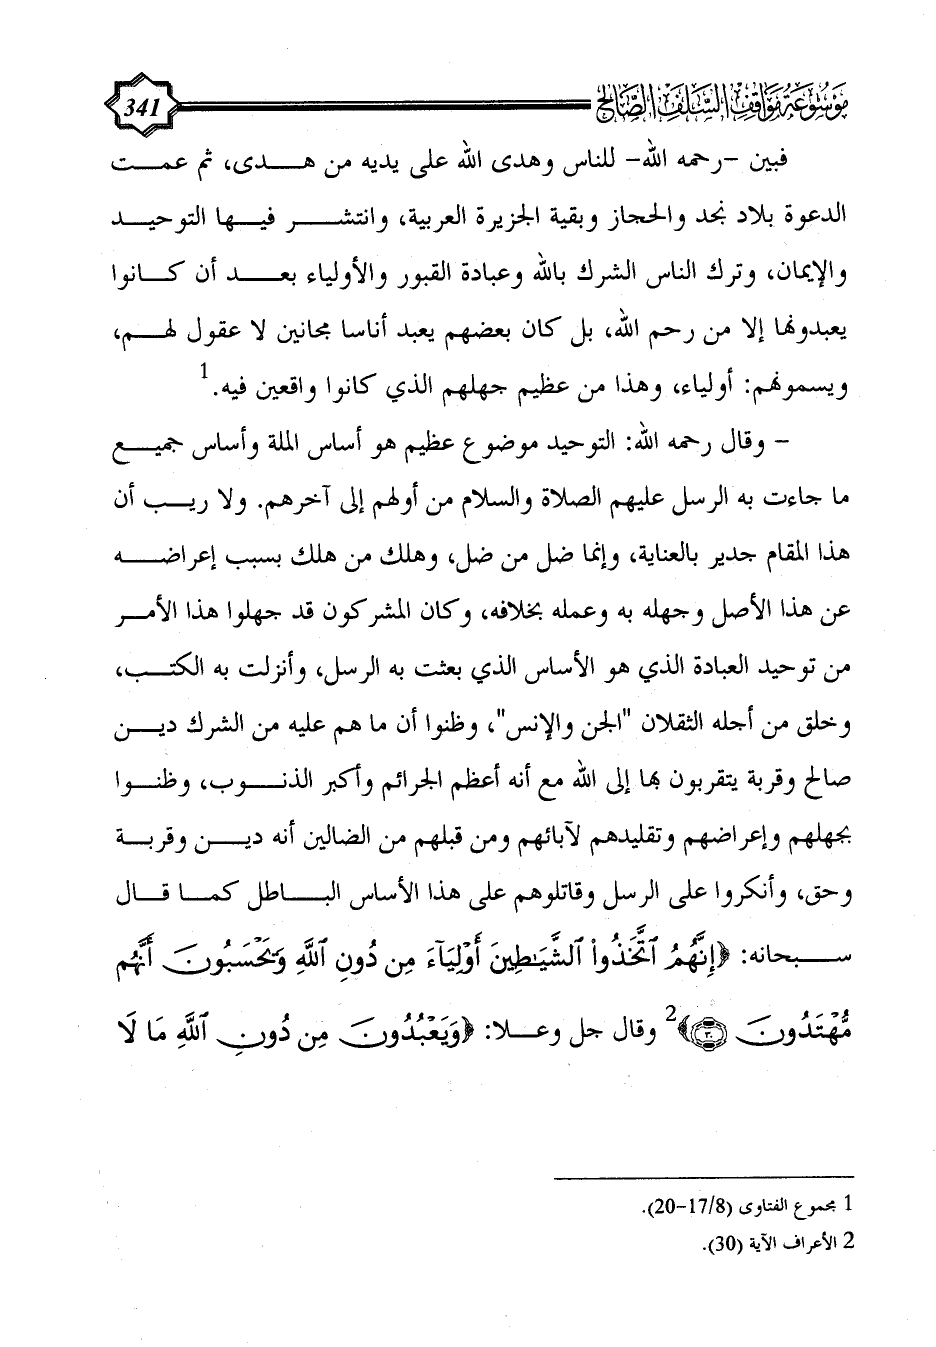 موسوعة مواقف السلف الصالح
341
فبين -رحمه الله- للناس وهدى الله على يديه من هدى، ثم عمت
الدعوة بلاد نجد والحجاز وبقية الجزيرة العربية، وانتشر فيها التوحيد
والإيمان، وترك الناس الشرك بالله وعبادة القبور والأولياء بعد أن كانوا
يعبدونها إلا من رحم الله، بل كان بعضهم يعبد أناسا مجانين لا عقول لهم،
ويسمونهم: أولياء، وهذا من عظيم جهلهم الذي كانوا واقعين فيه.1
- وقال رحمه الله: التوحيد موضوع عظيم هو أساس الملة وأساس جميع
ما جاءت به الرسل عليهم الصلاة والسلام من أولهم إلى آخرهم. ولا ريب أن
هذا المقام جدير بالعناية، وإنما ضل من ضل، وهلك من هلك بسبب إعراضه
عن هذا الأصل وجهله به وعمله بخلافه، وكان المشركون قد جهلوا هذا الأمر
من توحيد العبادة الذي هو الأساس الذي بعثت به الرسل، وأنزلت به الكتب،
وخلق من أجله الثقلان "الجن والإنس"، وظنوا أن ما هم عليه من الشرك دين
صالح وقربة يتقربون بها إلى الله مع أنه أعظم الجرائم وأكبر الذنوب، وظنوا
بجهلهم وإعراضهم وتقليدهم لآبائهم ومن قبلهم من الضالين أنه دين وقربة
وحق، وأنكروا على الرسل وقاتلوهم على هذا الأساس الباطل كما قال
سبحانه: ﴿إِنَّهُمُ ٱتَّخَذُواْ ٱلشَّيَٰطِينَ أَوْلِيَآءَ مِن دُونِ ٱللَّهِ وَيَحْسَبُونَ أَنَّهُم
مُّهْتَدُونَ ۝٣٠﴾2 وقال جل وعلا: ﴿وَيَعْبُدُونَ مِن دُونِ ٱللَّهِ مَا لَا
1 مجموع الفتاوى (17/8-20).
2 الأعراف الآية (30).